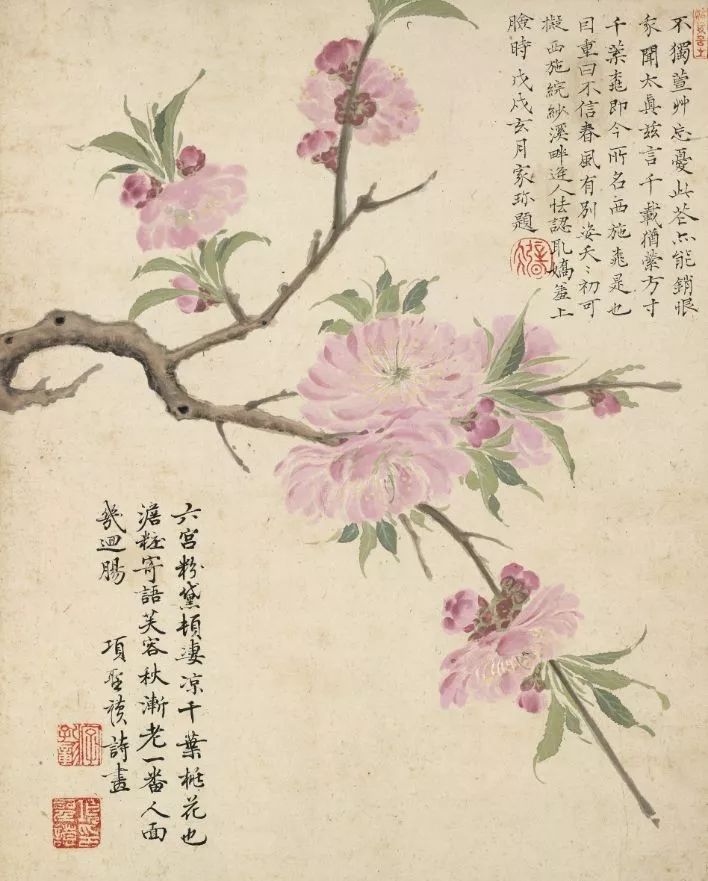 不獨萱艸忘憂此花亦能銷恨
家聞太真玆言千載猶縈方寸
千葉桃即今所名西施桃是也
曰重曰不信春風有別姿夭〻初可
擬西施浣紗溪畔逢人怯認取嬌羞上
臉時戊戌玄月家珎題
六宮粉黛頓淒涼千葉桃花也
澹粧寄語芙容秋漸老一番人面
幾迴腸
項聖謨詩畫